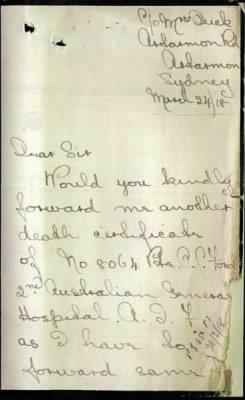 C/o Mrs Duck
Ardarmon Rd
Ardarmon
Sydney
March 24/18
Dear Sir
Would you kindly
forward me another
death certificate
of No 8064 Pte
2nd Australian General
Hospital. A. I. F
as I have to
forward same